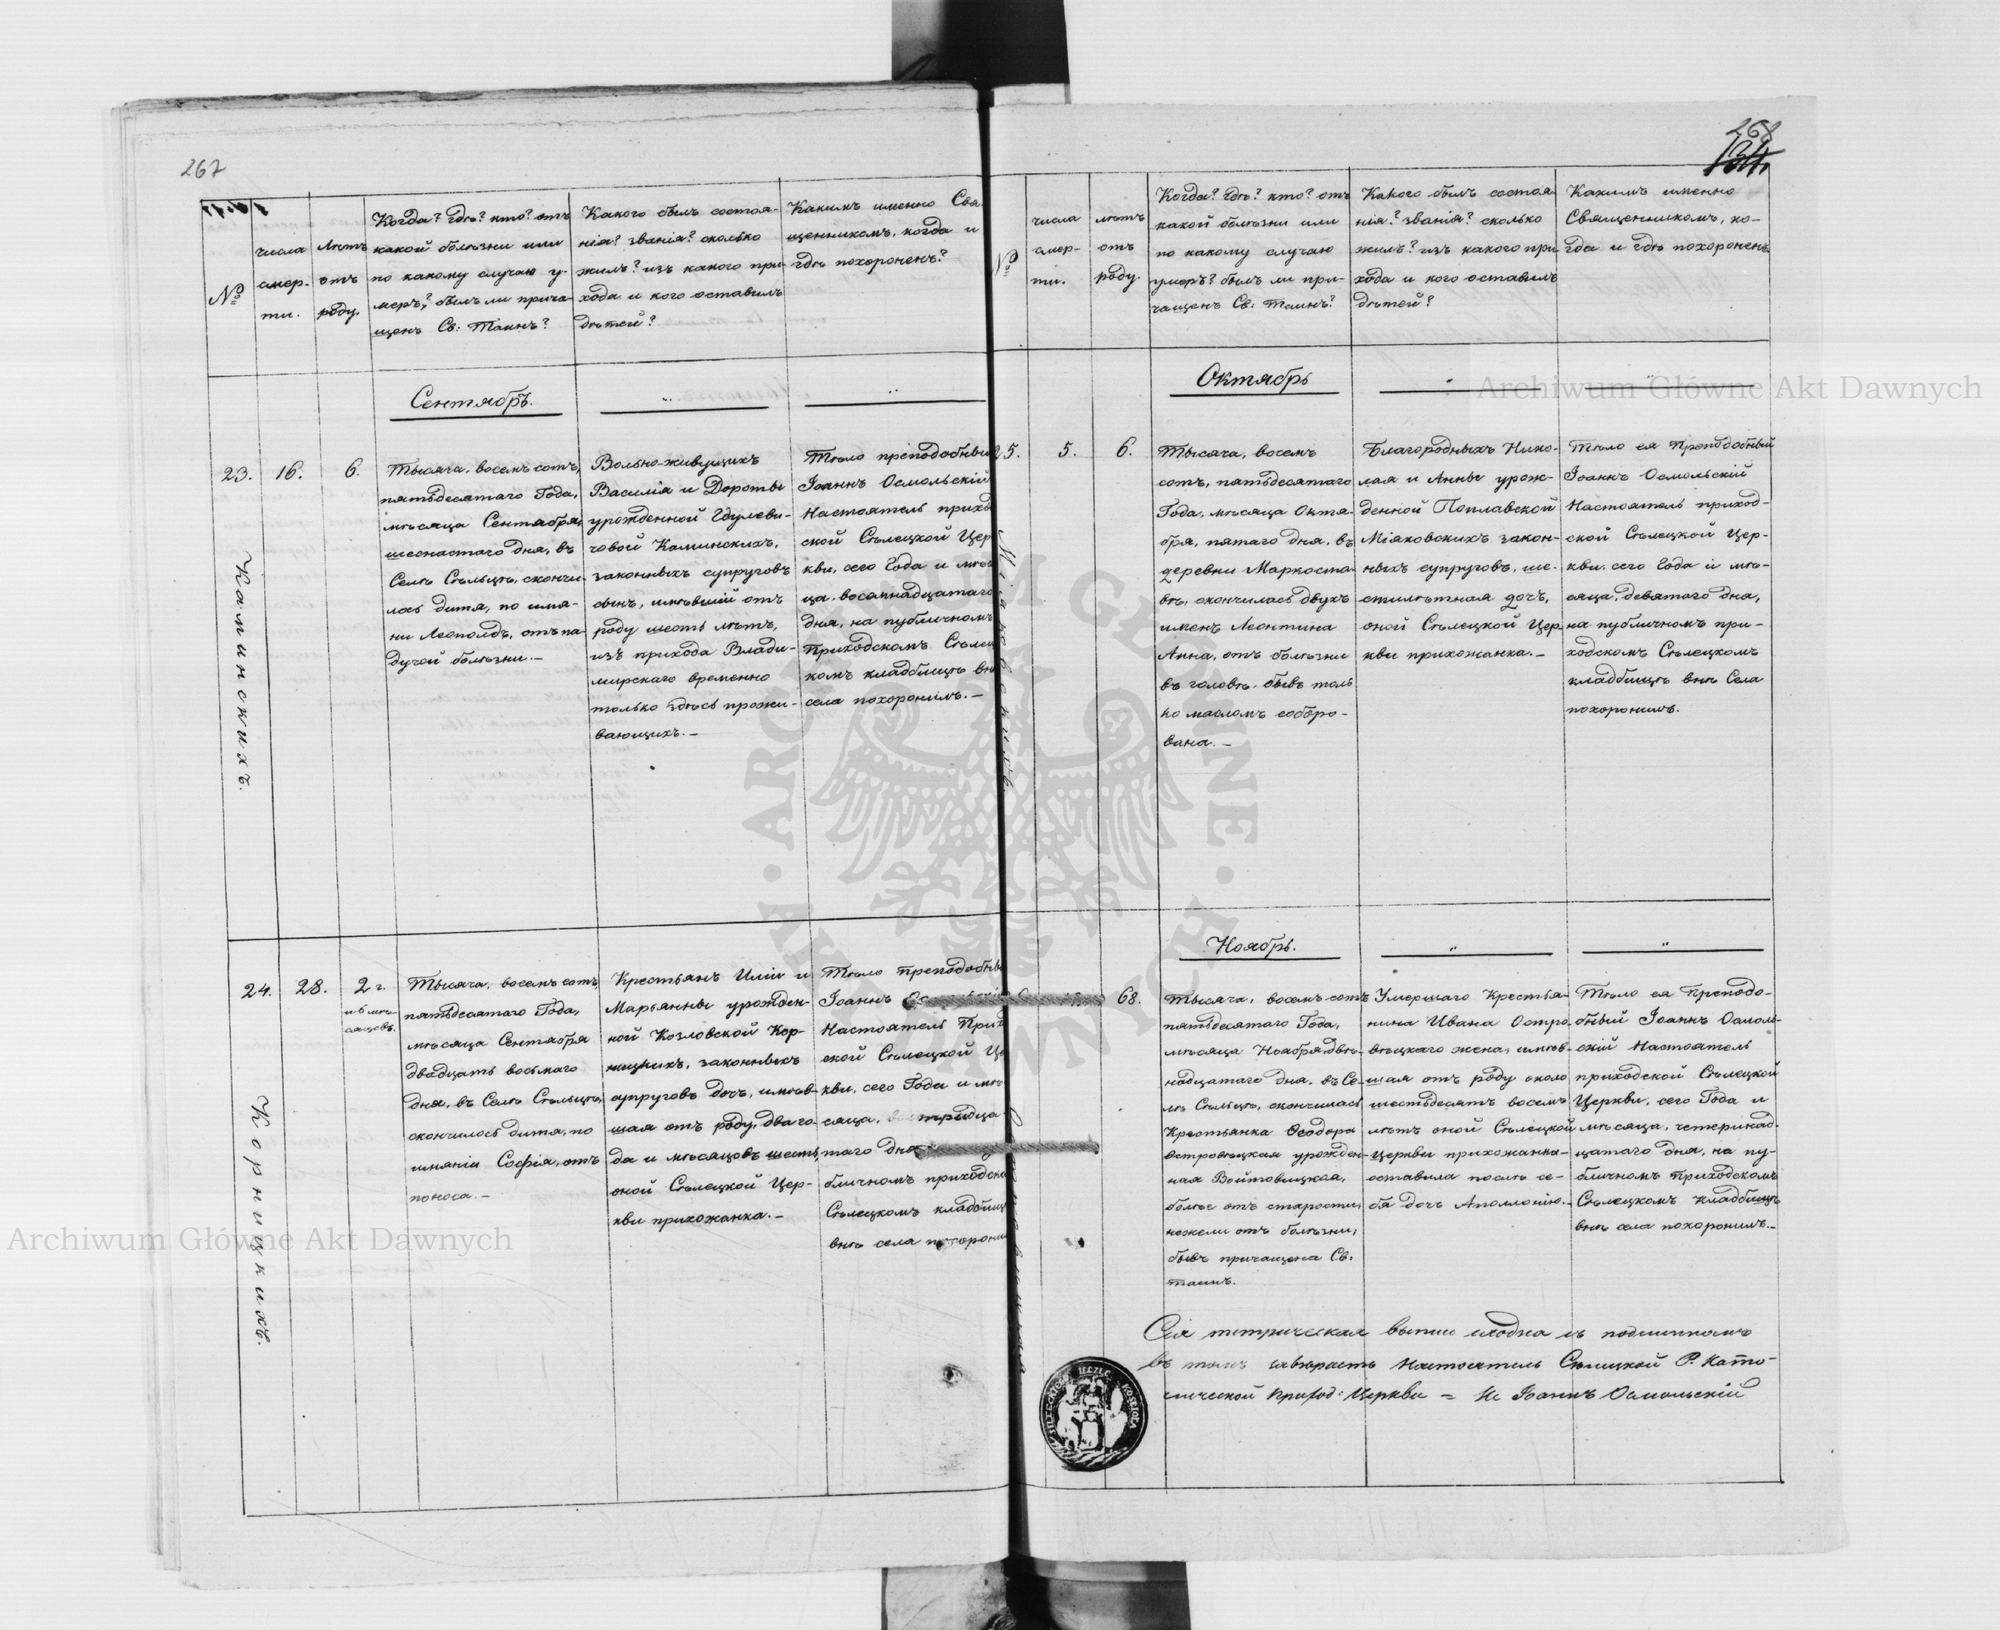 267
№
числа
смер-
ти.
Лѣтъ
отъ
роду.
Когда? Гдѣ? кто? отъ
какой болѣзни или
по какому случаю у-
меръ? былъ ли прича-
щенъ Св: Таинъ?
Какого былъ состоя-
нія? званія? сколько
жилъ? изъ какого при-
хода и кого оставилъ
дѣтей?
Какимъ именно Свя-
щенникомъ, когда и
гдѣ похороненъ?
Сентябрь.
23.
Каминскихъ.
16.
6.
Тысяча, восемь сотъ,
пятьдесятаго Года,
мѣсяца Сентября,
шеснастаго дня, въ
Селѣ Сѣльцѣ, скончи-
лось дитя, по имя-
ни Леополдъ, отъ па-
дучой болѣзни.—
Вольно-живущихъ
Василія и Дороты
урожденной Гдулеви-
човой Каминскихъ,
законныхъ супруговъ
сынъ, имѣвшій отъ
роду шесть лѣтъ,
изъ прихода Влади-
мирскаго временно
только здѣсь прожи-
вающихъ.—
Тѣло преподобный
Іоаннъ Осмольскій
Настоятель приход
ской Сѣлецкой Цер
кви, сего Года и мѣся
ца, восемнадцатаго
дня, на публичномъ
Приходскомъ Сѣлец
комъ кладбищѣ внѣ
села похоронилъ.—
24.
Корницкихъ.
28.
2 г.
и 6 мѣ-
сяцовъ.
Тысяча, восемь сотъ,
пятьдесятаго Года,
мѣсяца Сентября
двадцать восьмаго
дня, въ Селѣ Сѣльцѣ,
скончилось дитя, по
имяніи Софія, отъ
поноса.—
Крестьянъ Иліи и
Марьянны урожден-
ной Козловской Кор-
ницкихъ, законныхъ
супруговъ дочь, имѣв-
шая отъ роду, два го-
да и мѣсяцовъ шесть,
оной Сѣлецкой Цер-
кви прихожанка.—
Тѣло Преподобный
Іоаннъ
Настоятель Прих
ской Сѣлецкой Це
кви, сего Года и мѣ
сяца, тридца-
таго дня
бличномъ приходско
Сѣлецкомъ кладбищ
внѣ села похорони
268
134.
№
числа
смер-
ти.
лѣтъ
отъ
роду.
Когда? Гдѣ? кто? отъ
какой болѣзни или
по какому случаю
умеръ? былъ ли при-
чащенъ Св: Таинъ?
Какого былъ состоя
нія? званія? сколько
жилъ? изъ какого при
хода и кого оставилъ
дѣтей?
Какимъ именно
Священникомъ, ко-
гда и гдѣ похороненъ
Октябрь
25.
5.
6.
Тысяча, восемь
сотъ, пятьдесятаго
Года, мѣсяца Октя-
бря, пятаго дня, въ
деревни Маркоста-
вѣ, скончилась двухъ
именъ Леонтина
Анна, отъ болѣзни
въ головѣ, бывъ толь
ко масломъ соборо-
вана.—
Благородныхъ Нико-
лая и Анны урож-
денной Поплавской
Міяковскихъ закон-
ныхъ супруговъ, ше-
стилѣтная дочь,
оной Сѣлецкой Цер
кви прихожанка.—
Тѣло ея Преподобный
Іоаннъ Осмольскій
Настоятель приход-
ской Сѣлецкой Цер-
кви, сего Года и мѣ-
сяца, девятаго дня,
на публичномъ при-
ходскомъ Сѣлецкомъ
кладбищѣ внѣ Села
похоронилъ.
Ноябрь.
68.
Тысяча, восемь сотъ
пятьдесятаго Года,
мѣсяца Ноября, двѣ-
надцатаго дня, въ Се-
лѣ Сѣльцѣ, скончилась
Крестьянка Ѳеодора
Островецкая урожден-
ная Войтовицкая,
болѣе отъ старости,
нежели отъ болѣзни,
бывъ причащена Св:
таинъ.
Умершаго Крестья-
нина Ивана Остро-
вецкаго жена, имѣв-
шая отъ роду около
шестьдесятъ восемь
лѣтъ оной Сѣлецкой
Церкви прихожанка-
оставила послѣ се-
бя дочь Аполлонію.—
Тѣло ея Преподо-
бный Іоаннъ Осмоль-
скій Настоятель
приходской Сѣлецкой
Церкви, сего Года и
мѣсяца, четеринад-
цатаго дня, на пу-
бличномъ приходскомъ
Сѣлецкомъ кладбищѣ
внѣ села похоронилъ.—
Сія метрическая выпись сходна съ подлиннымъ
въ томъ завѣряетъ Настоятель Сѣлецкой Р. Като-
лической Приход: Церкви = Кс Іоаннъ Осмольскій
Archiwum Główne Akt Dawnych
Archiwum Główne Akt Dawnych